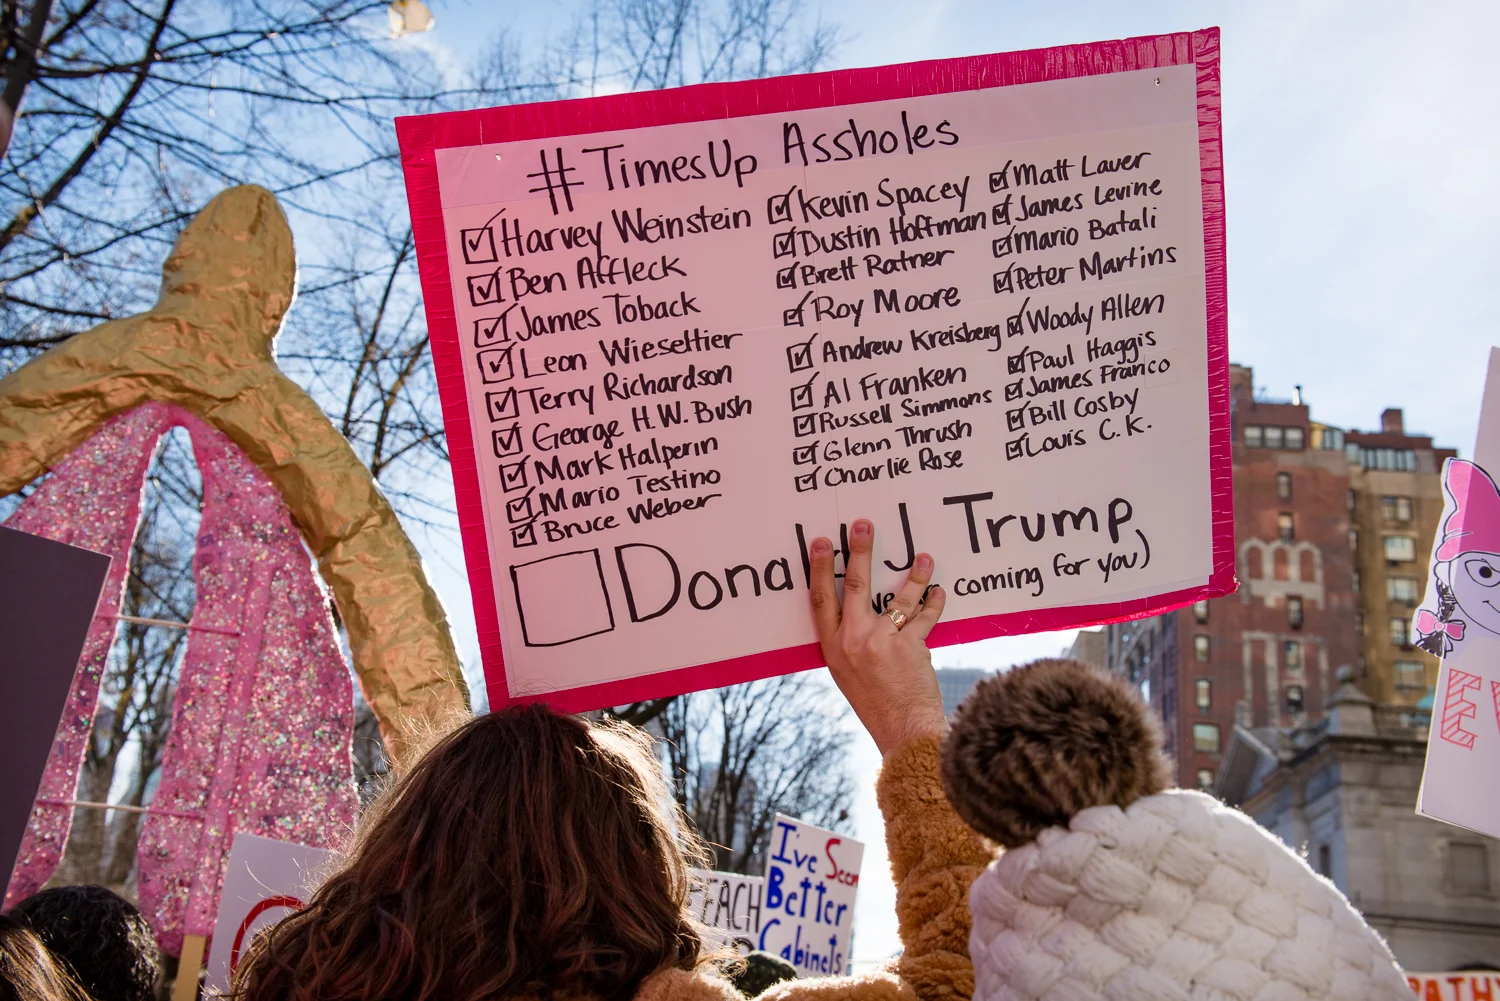 #TimesUp Assholes
Harvey Weinstein
Ben Affleck
James Toback
Leon Wieseltier
Terry Richardson
George H.W. Bush
Mark Halperin
Mario Testino
Bruce Weber
Kevin Spacey
Dustin Hoffman
Brett Ratner
Roy Moore
Andrew Kreisberg
Al Franken
Russell Simmons
Glenn Thrush
Charlie Rose
Matt Lauer
James Levine
Mario Batali
Peter Martins
Woody Allen
Paul Haggis
James Franco
Bill Cosby
Louis C.K.
Donald J Trump
coming for you)
I've Seen
Better
Cabinets